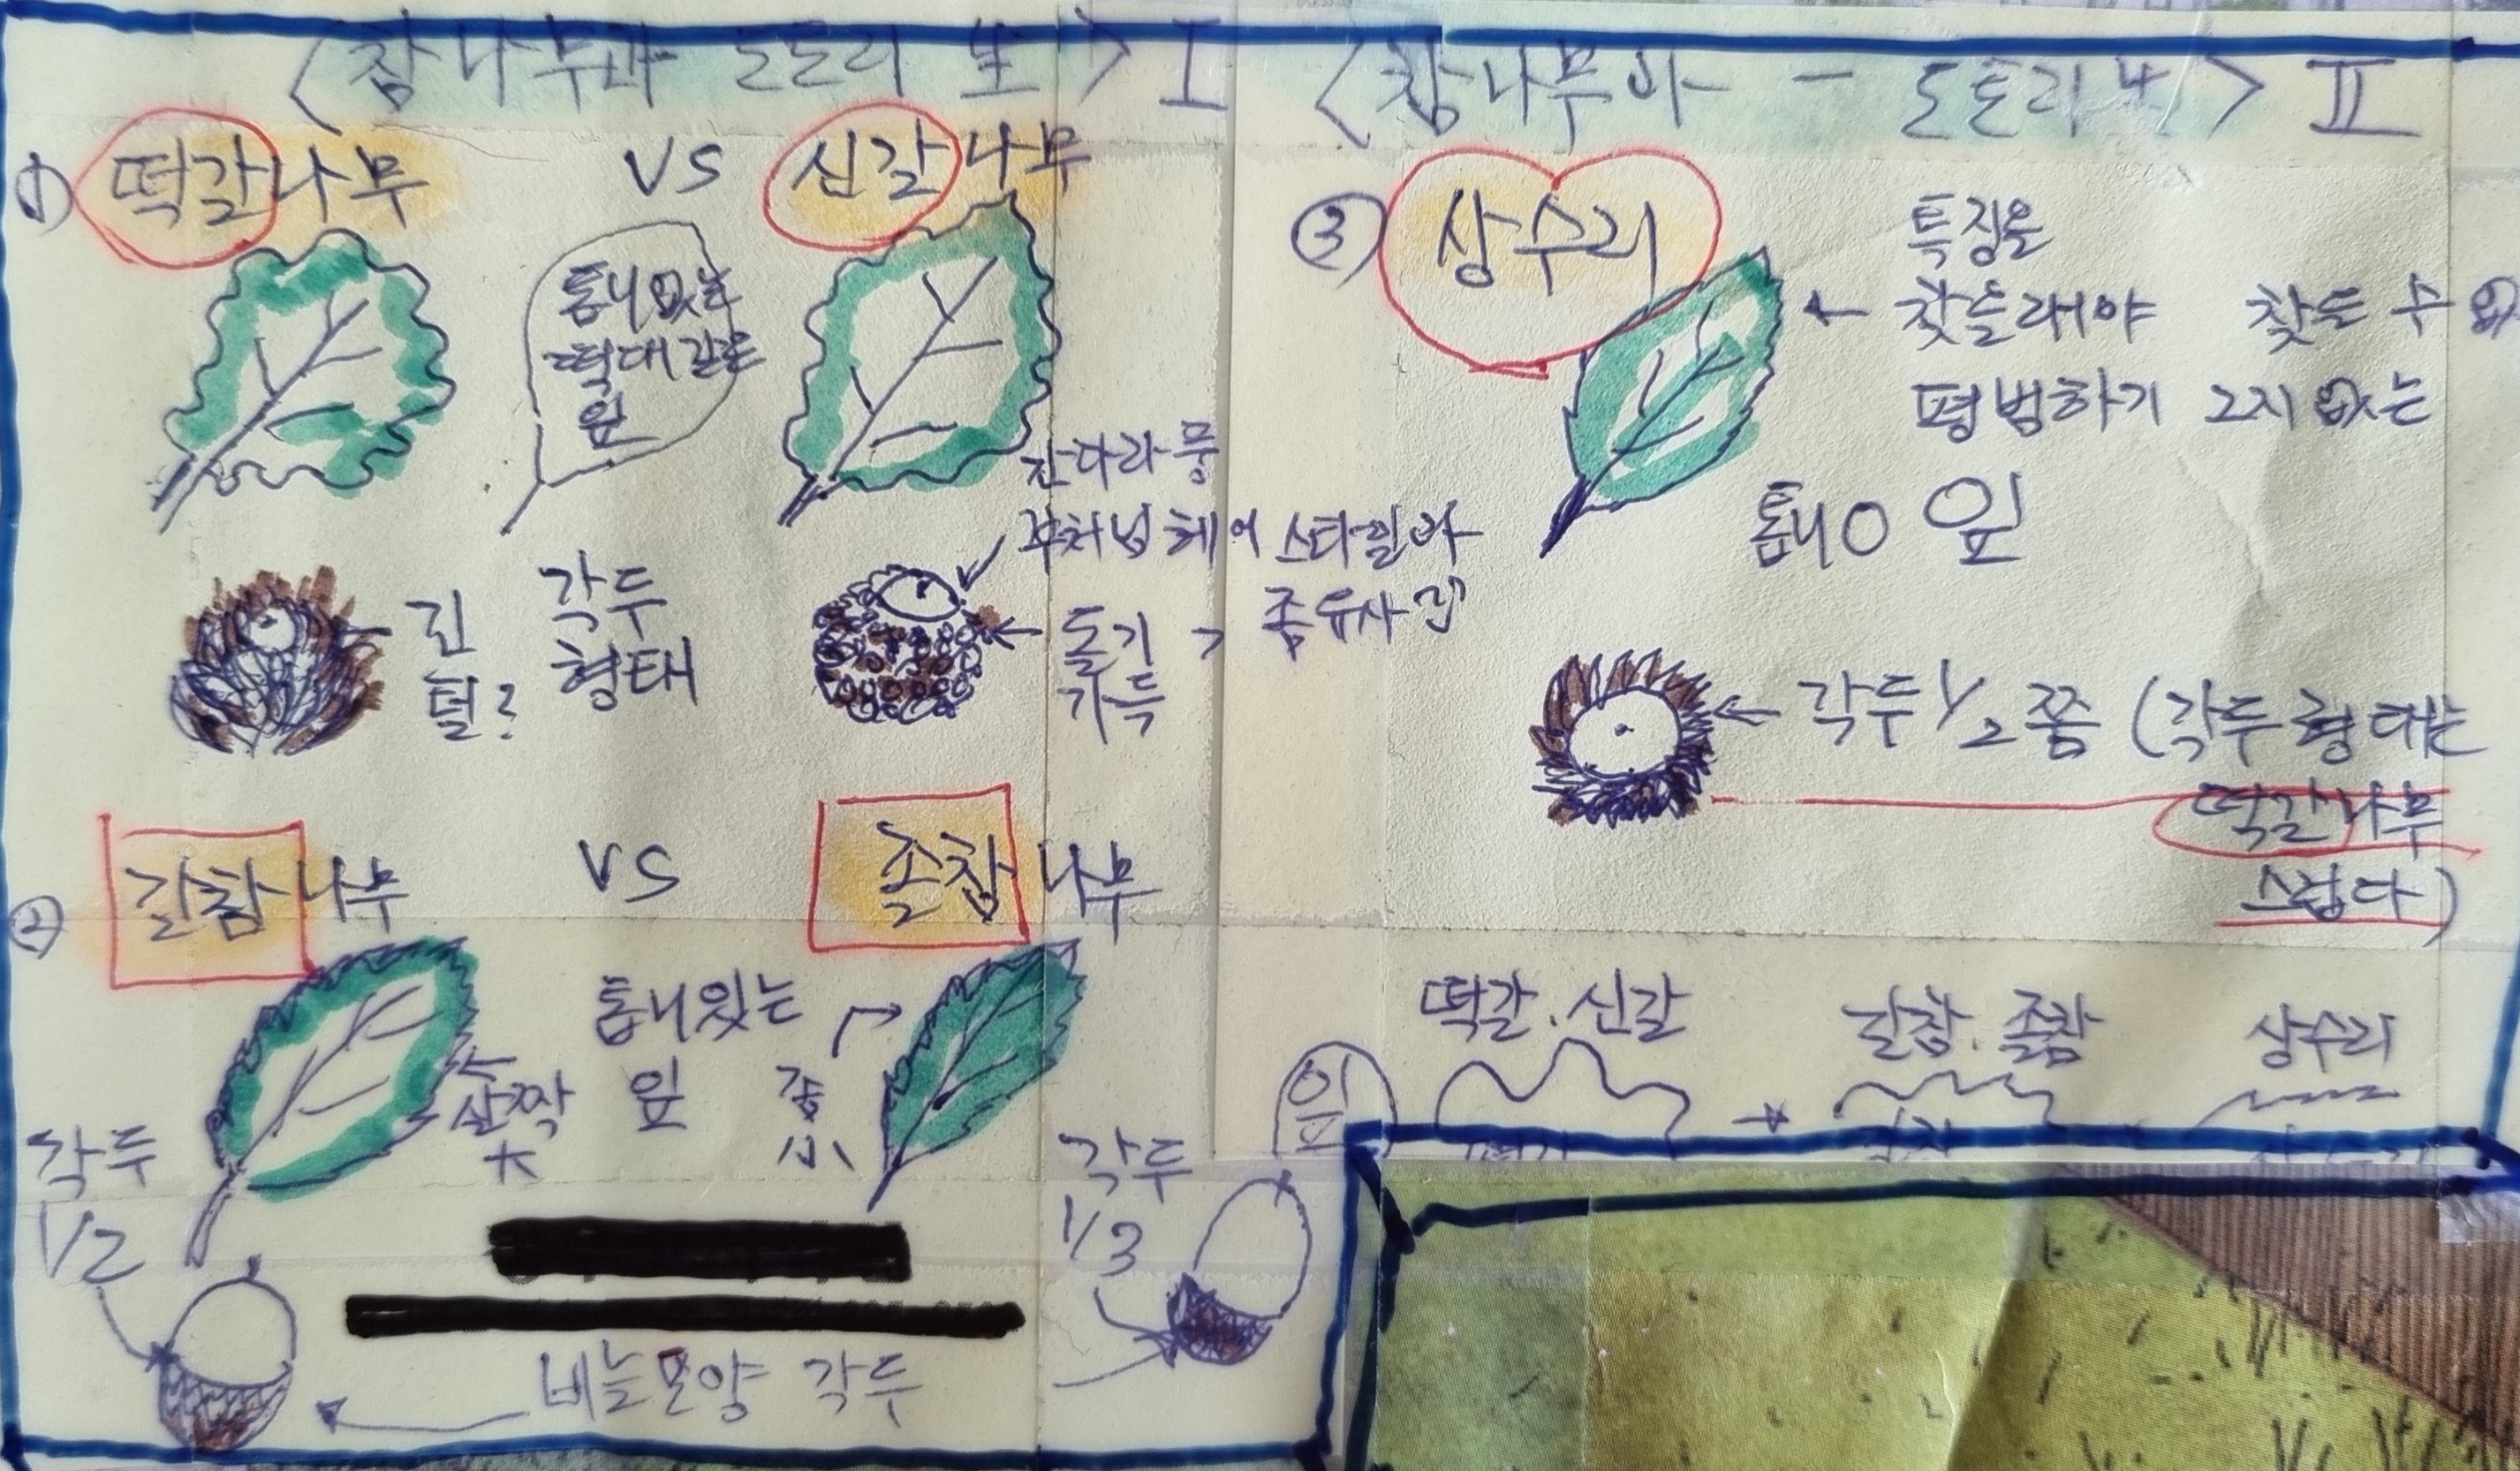 <참나무과 도토리 生> I
① 떡갈나무 vs 신갈나무
톱니없는
떡대같은
잎
긴
털?
각두
형태
잔다라 뿡
부처님 헤어 스타일과
좀 유사 ?
돌기
가득
② 갈참나무 vs 졸참나무
톱니있는
잎
살짝
大
좀
小
각두
1/2
각두
1/3
비늘모양 각두
<참나무과 - 도토리 生> II
③ 상수리
특징을
찾을래야 찾을 수 없
평범하기 그지없는
톱니O 잎
각두 1/2쯤 (각두 형태는
떡갈나무
스럽다)
떡갈.신갈 갈참.졸참 상수리
잎